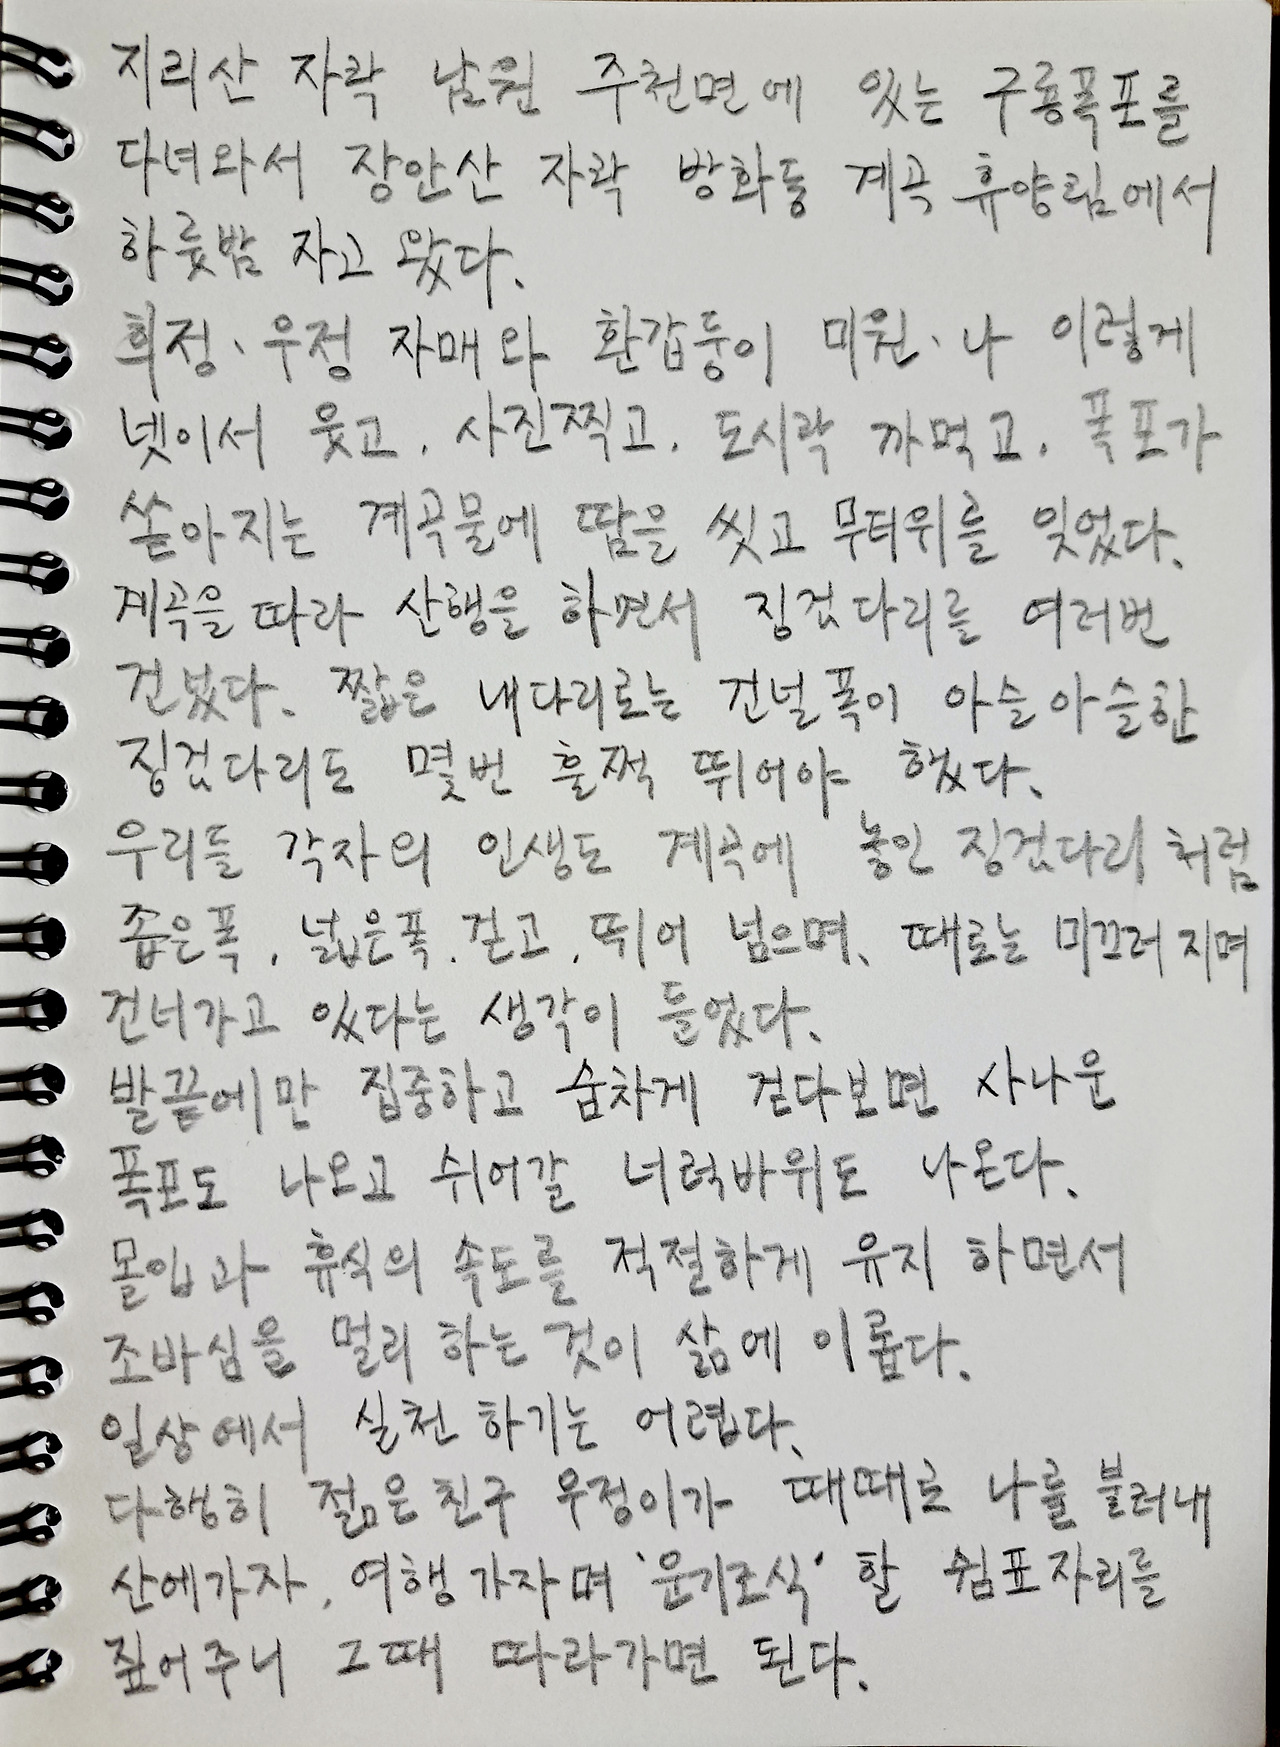 지리산 자락 남원 주천면에 있는 구룡폭포를
다녀와서 장안산 자락 방화동 계곡 휴양림에서
하룻밤 자고 왔다.
희정、우정 자매와 환갑둥이 미원、나 이렇게
넷이서 웃고, 사진찍고, 도시락 까먹고, 폭포가
쏟아지는 계곡물에 땀을 씻고 무더위를 잊었다.
계곡을 따라 산행을 하면서 징검다리를 여러번
건넜다. 짧은 내다리로는 건널 폭이 아슬아슬한
징검다리도 몇번 훌쩍 뛰어야 했다.
우리들 각자의 인생도 계곡에 놓인 징검다리처럼
좁은폭, 넓은폭, 걷고, 뛰어 넘으며, 때로는 미끄러지며
건너가고 있다는 생각이 들었다.
발끝에만 집중하고 숨차게 걷다보면 사나운
폭포도 나오고 쉬어갈 너럭바위도 나온다.
몰입과 휴식의 속도를 적절하게 유지 하면서
조바심을 멀리 하는 것이 삶에 이롭다.
일상에서 실천 하기는 어렵다.
다행히 젊은 친구 우정이가 때때로 나를 불러내
산에가자, 여행 가자며 '운기조식' 할 쉼표자리를
짚어주니 그때 따라가면 된다.